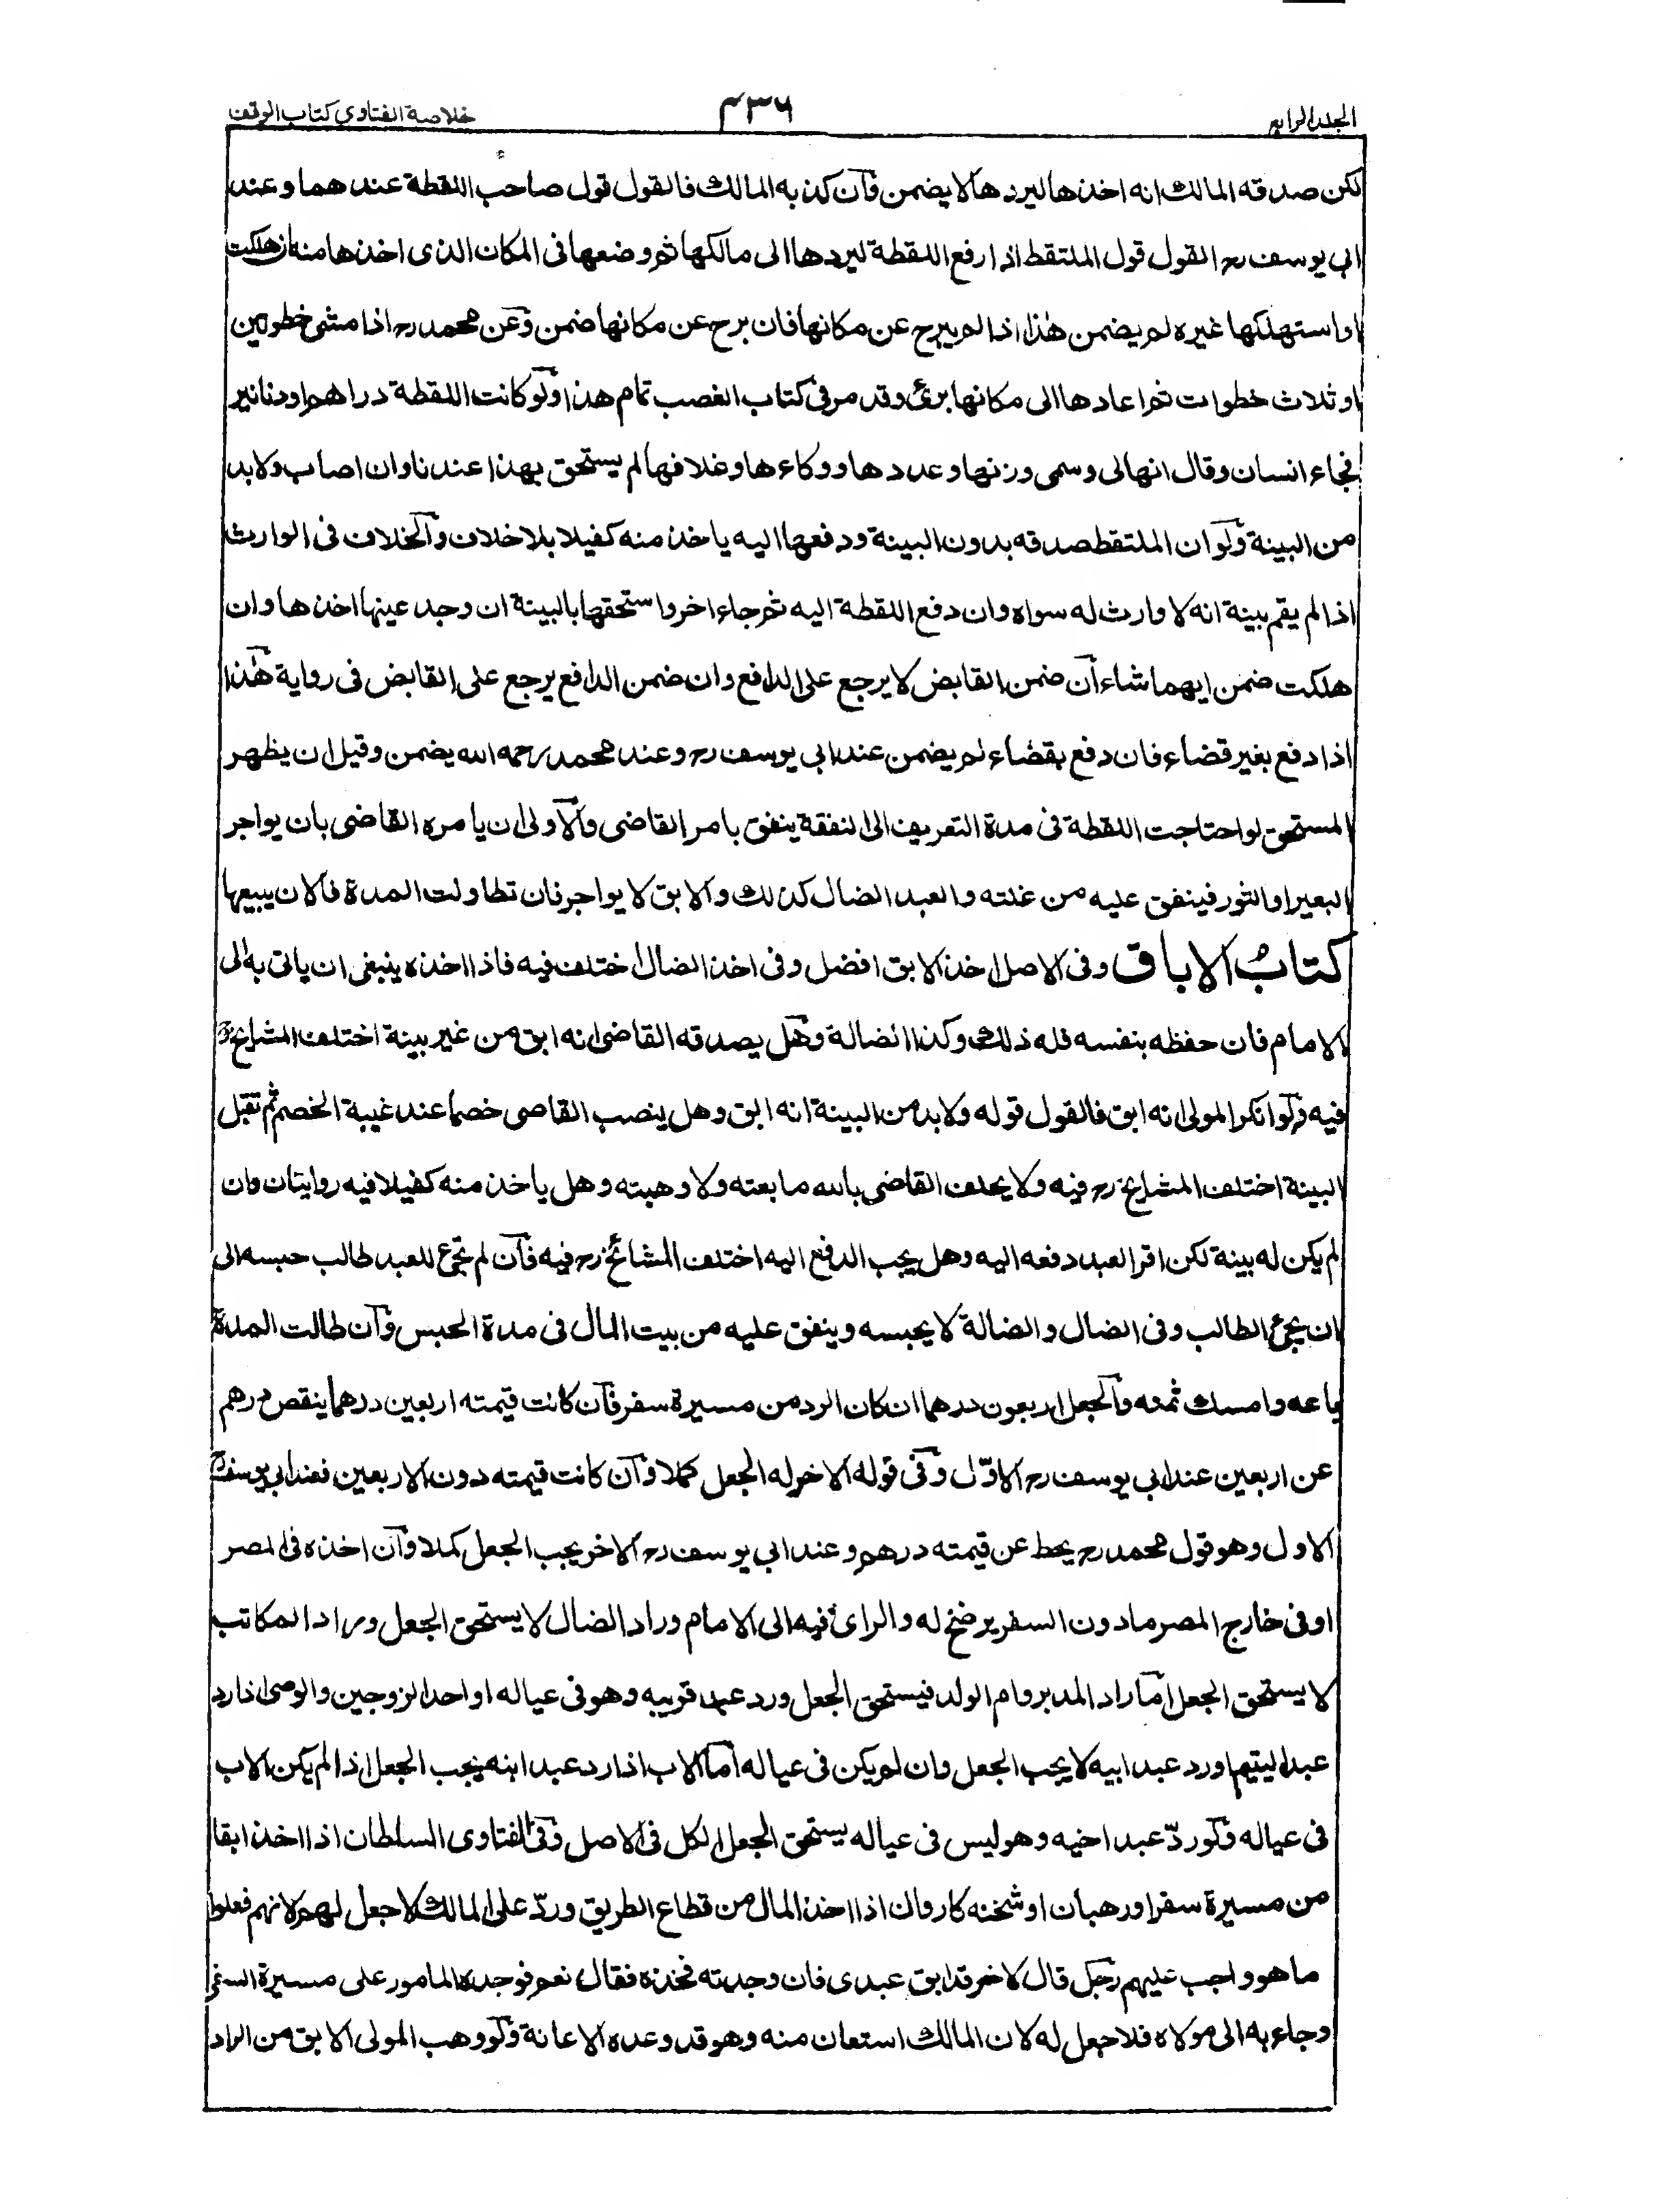 الجلد الرابع ۴۳۶ خلاصة الفتاوى كتاب الوقف
لكن صدقه المالك انه اخذها ليردها لا يضمن وان كذبه المالك فالقول قول صاحب اللقطة عندهما وعند
ابي يوسف رح القول قول الملتقط اذا رفع اللقطة ليردها الى مالكها ثم وضعها في المكان الذي اخذها منه ان هلكت
او استهلكها غيره لم يضمن هذا اذا لم يبرح عن مكانها فان برح عن مكانها ضمن وعن محمد رح اذا مشى خطوتين
او ثلاث خطوات ثم اعادها الى مكانها برئ وقد مر في كتاب الغصب تمام هذا ولو كانت اللقطة دراهم او دنانير
فجاء انسان وقال انها لي وسمى وزنها وعددها ووكاءها وغلافها لم يستحق بهذا عندنا وان اصاب ولا بد
من البينة ولو ان الملتقط صدقه بدون البينة ودفعها اليه ياخذ منه كفيلا بلا خلاف والخلاف في الوارث
اذا لم يقم بينة انه لا وارث له سواه وان دفع اللقطة اليه ثم جاء اخر واستحقها بالبينة ان وجد عينها اخذها وان
هلكت ضمن ايهما شاء ان ضمن القابض لا يرجع على الدافع وان ضمن الدافع يرجع على القابض في رواية هذا
اذا دفع بغير قضاء فان دفع بقضاء لم يضمن عند ابي يوسف رح وعند محمد رحمه الله يضمن وقيل ان يظهر
المستحق لو احتاجت اللقطة في مدة التعريف الى النفقة ينفق بامر القاضي والاولى ان يامره القاضي بان يواجر
البعير او الثور فينفق عليه من غلته والعبد الضال كذلك والابق لا يواجر فان تطاولت المدة فالان يبيعها
كتاب الاباق وفي الاصل اخذ الابق افضل وفي اخذ الضال اختلف فيه فاذا اخذه ينبغي ان ياتي به الى
الامام فان حفظه بنفسه فله ذلك وكذا الضالة وهل يصدقه القاضي انه ابق من غير بينة اختلف المشايخ رح
فيه ولو انكر المولى انه ابق فالقول قوله ولا بد من البينة انه ابق وهل ينصب القاضي خصما عند غيبة الخصم ثم تقبل
البينة اختلف المشايخ رح فيه ولا يحلف القاضي بالله ما بعته ولا وهبته وهل ياخذ منه كفيلا فيه روايتان وان
لم يكن له بينة لكن اقر العبد دفعه اليه وهل يجب الدفع اليه اختلف المشائخ رح فيه فان لم تجئ للعبد طالب حبسه الى
ان يجئ الطالب وفي الضال والضالة لا يحبسه وينفق عليه من بيت المال في مدة الحبس وان طالت المدة
باعه وامسك ثمنه والجعل اربعون درهما ان كان الرد من مسيرة سفر فان كانت قيمته اربعين درهما ينقص درهم
عن اربعين عند ابي يوسف رح الاول وفي قوله الاخر له الجعل كملا وان كانت قيمته دون الاربعين فعند ابي يوسف رح
الاول وهو قول محمد رح يحط عن قيمته درهم وعند ابي يوسف رح الاخر يجب الجعل كملا وان اخذه في المصر
او في خارج المصر مادون السفر يرضخ له والراي فيه الى الامام وراد الضال لا يستحق الجعل وراد المكاتب
لا يستحق الجعل اما راد المدبر وام الولد فيستحق الجعل ورد عبد قريبه وهو في عياله او احد الزوجين والوصي اذا رد
عبد اليتيم او رد عبد ابيه لا يجب الجعل وان لم يكن في عياله اما الاب اذا رد عبد ابنه يجب الجعل اذا لم يكن الاب
في عياله ولو رد عبد اخيه وهو ليس في عياله يستحق الجعل الكل في الاصل وفي الفتاوى السلطان اذا اخذ ابقا
من مسيرة سفر او رهبان او شحنه كاروان اذا اخذ المال من قطاع الطريق ورد على المالك لا جعل لهم لانهم فعلوا
ما هو واجب عليهم رجل قال لاخر قد ابق عبدي فان وجدته فخذه فقال نعم فوجده المامور على مسيرة السفر
وجاء به الى مولاه فلا جعل له لان المالك استعان منه وهو قد وعده الاعانة ولو وهب المولى الابق من الراد